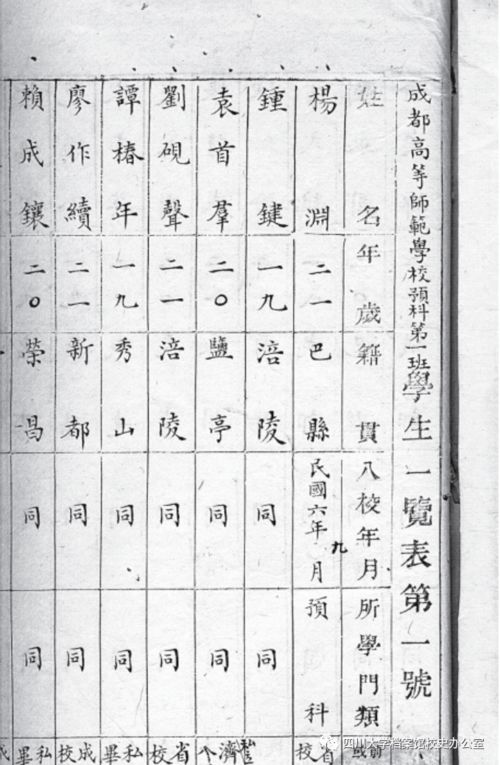 成都高等師範學校預科第一班學生一覽表第一號
姓名 年歲 籍貫 入校年月 所學門類
楊淵 二一 巴縣 民國六年九月 預科 省校
鍾鍵 一九 涪陵 同 同
袁首羣 二〇 鹽亭 同 同
劉硯聲 二一 涪陵 同 同 省校
譚椿年 一九 秀山 同 同 私畢
廖作續 二一 新都 同 同 成校
賴成鑲 二〇 榮昌 同 同 私畢
四川大学档案馆校史办公室